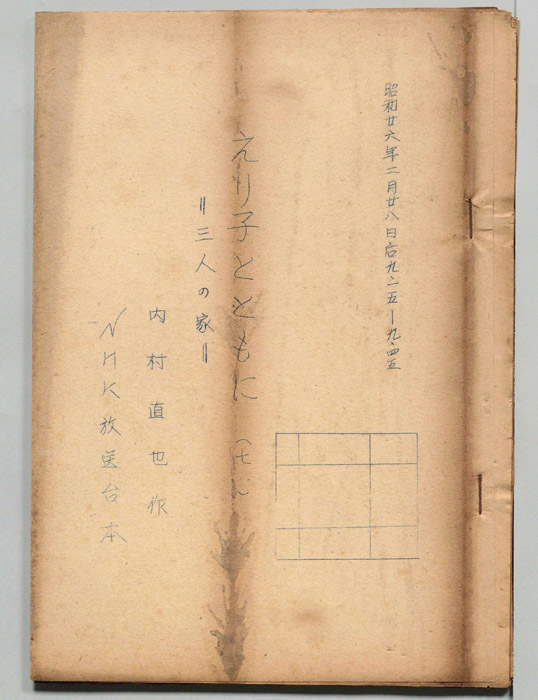 昭和廿六年二月廿八日后九・一五―九・四五
えり子とともに
＝三人の家＝
内村直也作
NHK放送台本